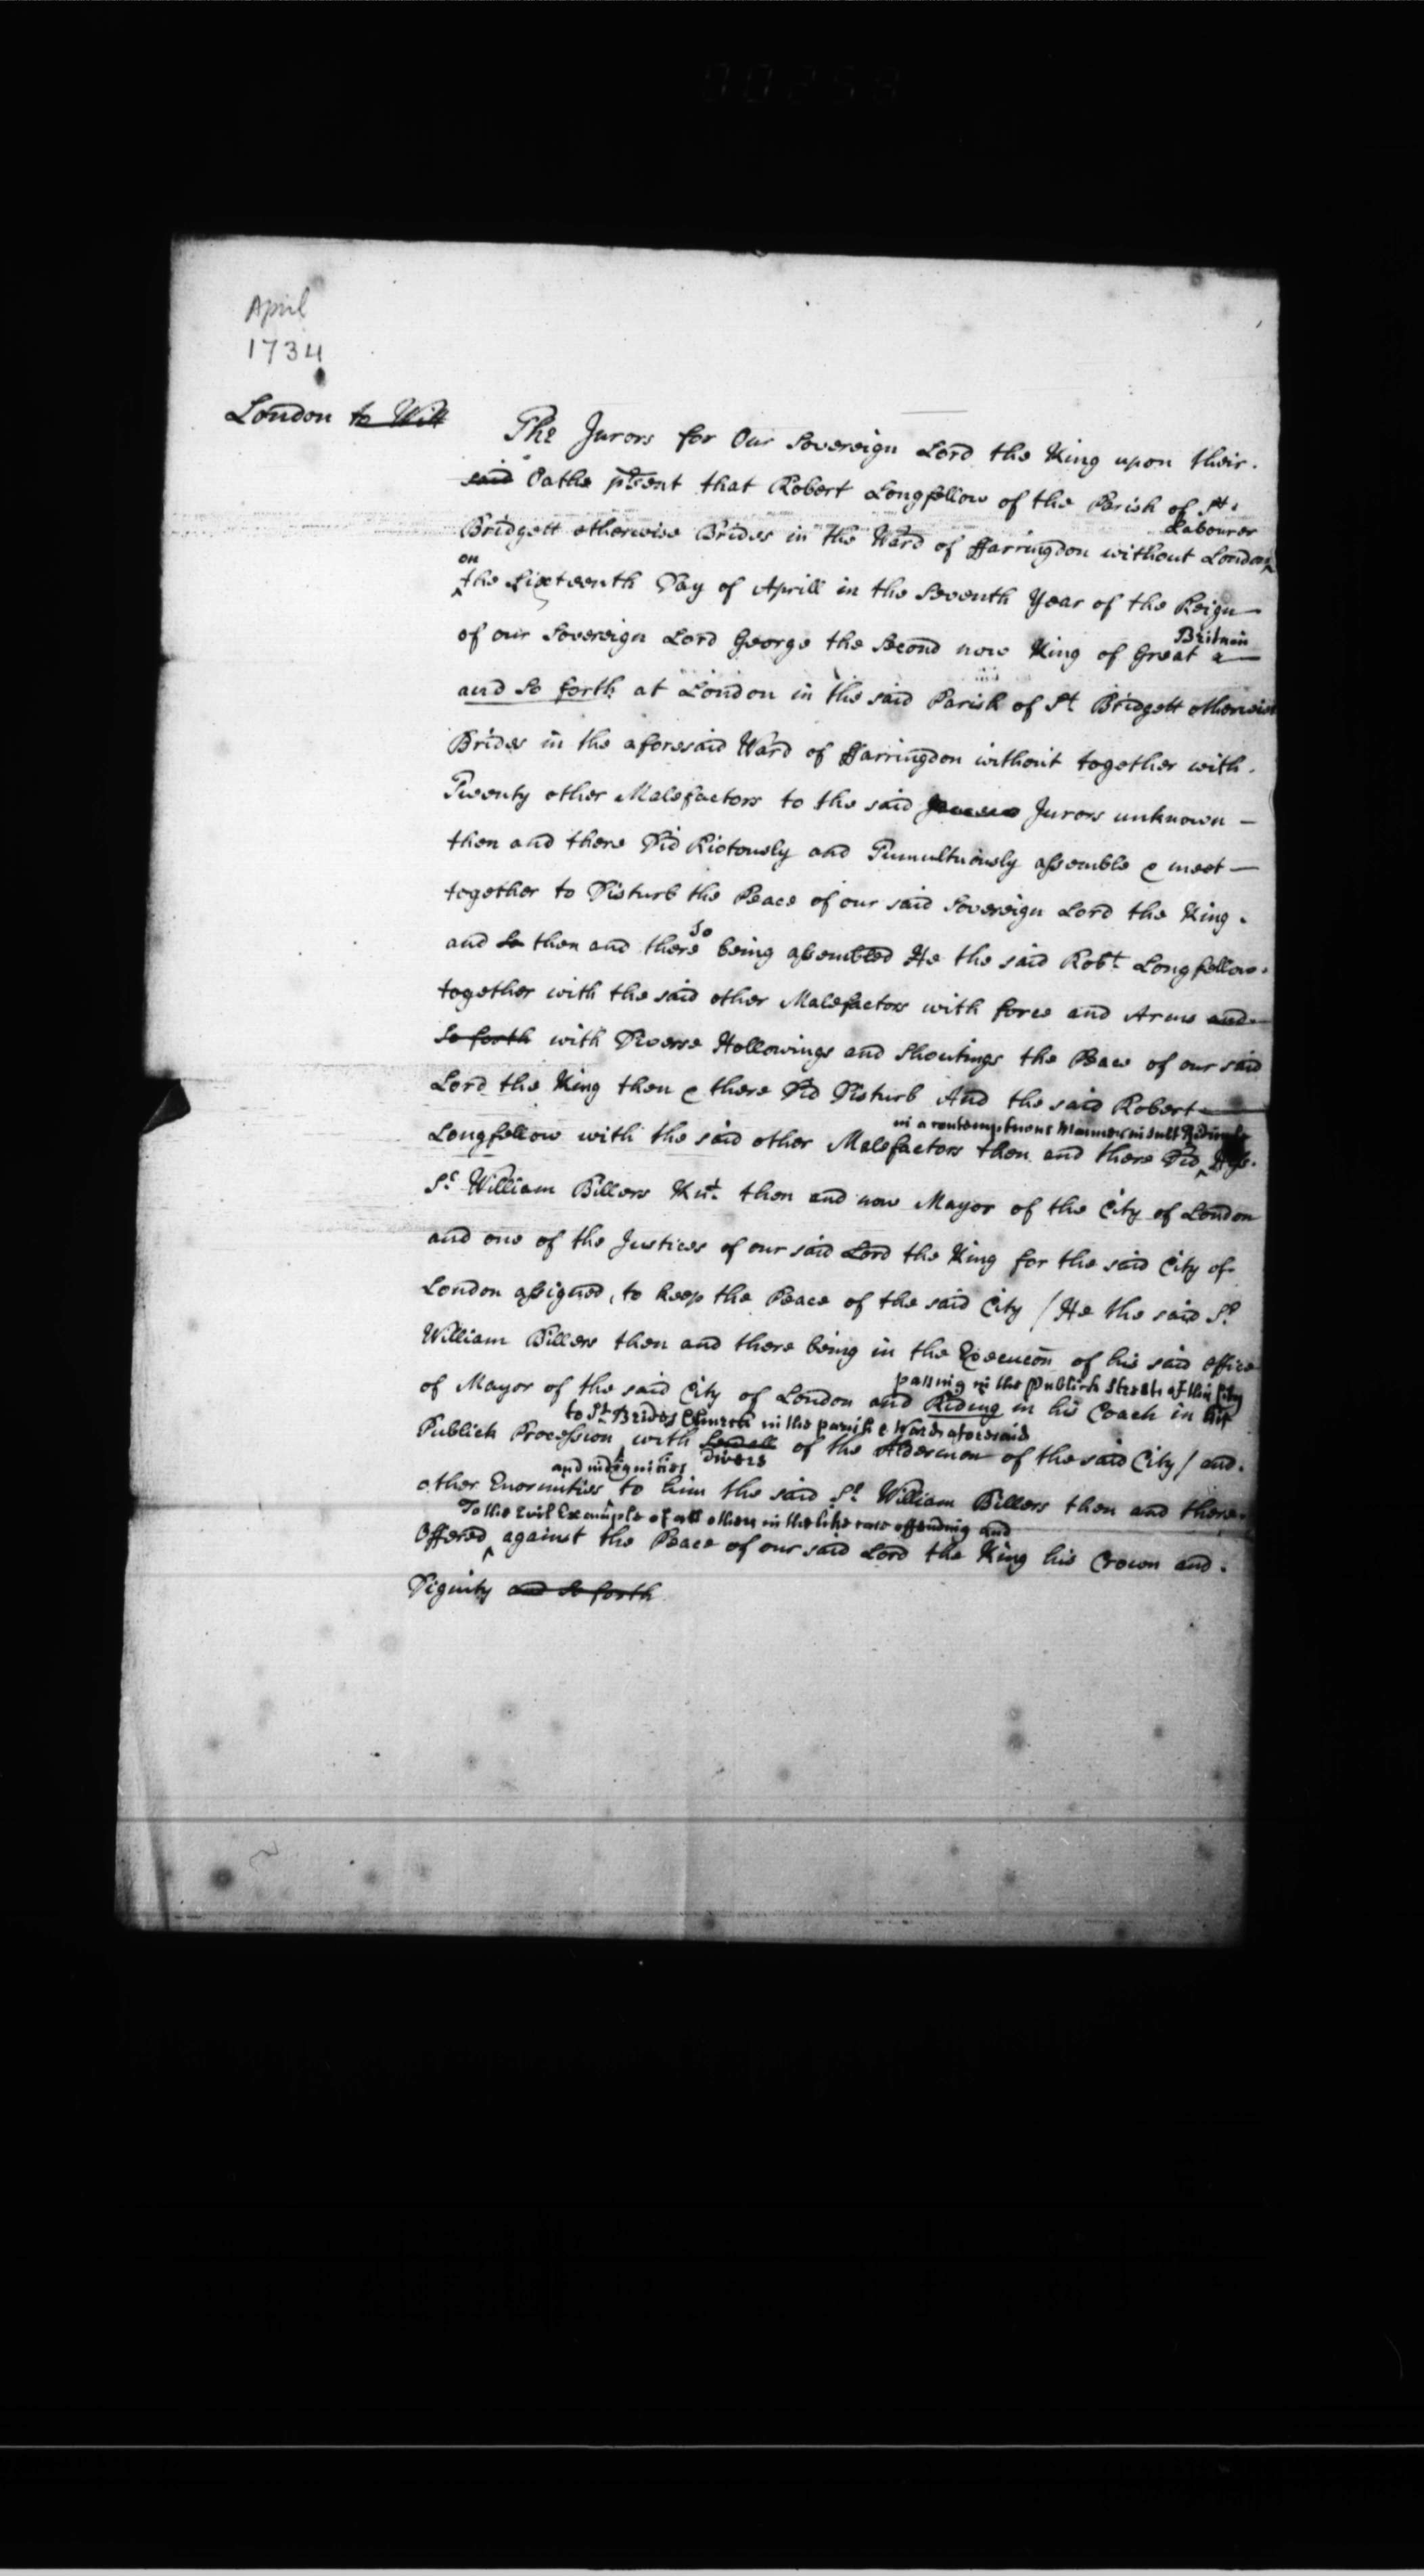 00258
April
1734
London to Witt
The Jurors for Our Sovereign Lord the King upon their
said Oathe psent that Robert Longfellow of the Parish of St.
Labourer
Bridgett otherwise Brides in the Ward of ffarringdon without London
on
the Sixteenth Day of Aprill in the Seventh Year of the Reign
of our Sovereign Lord George the Second now King of Great
Britain
and so forth at London in the said Parish of St Bridgett otherwise
Brides in the aforesaid Ward of ffarringdon without together with
Twenty other Malefactors to the said Jurors unknown
then and there Did Riotously and Tumultuously assemble & meet
together to Disturb the Peace of our said Sovereign Lord the King
so
and so then and there being assembled He the said Robt. Longfellow
together with the said other Malefactors with force and Arms and
so forth with Diverse Hollowings and Shoutings the Peace of our said
Lord the King then & there Did Disturb And the said Robert
in a contemptuous Manner insult Ridicule
Longfellow with the said other Malefactors then and there Did
Sr. William Billers Knt. then and now Mayor of the City of London
and one of the Justices of our said Lord the King for the said City of
London assigned, to keep the Peace of the said City / He the said Sr.
William Billers then and there being in the Execucon of his said office
passing in the Publick Streets of this City
of Mayor of the said City of London and Riding in his Coach in his
to St. Brides Church in the parish & Ward aforesaid
Publick Procession with of the Aldermen of the said City / and
and indignities divers
other Enormities to him the said Sr. William Billers then and there
To the Evil Example of all others in the like case offending and
Offered against the Peace of our said Lord the King his Crown and
Dignity and so forth